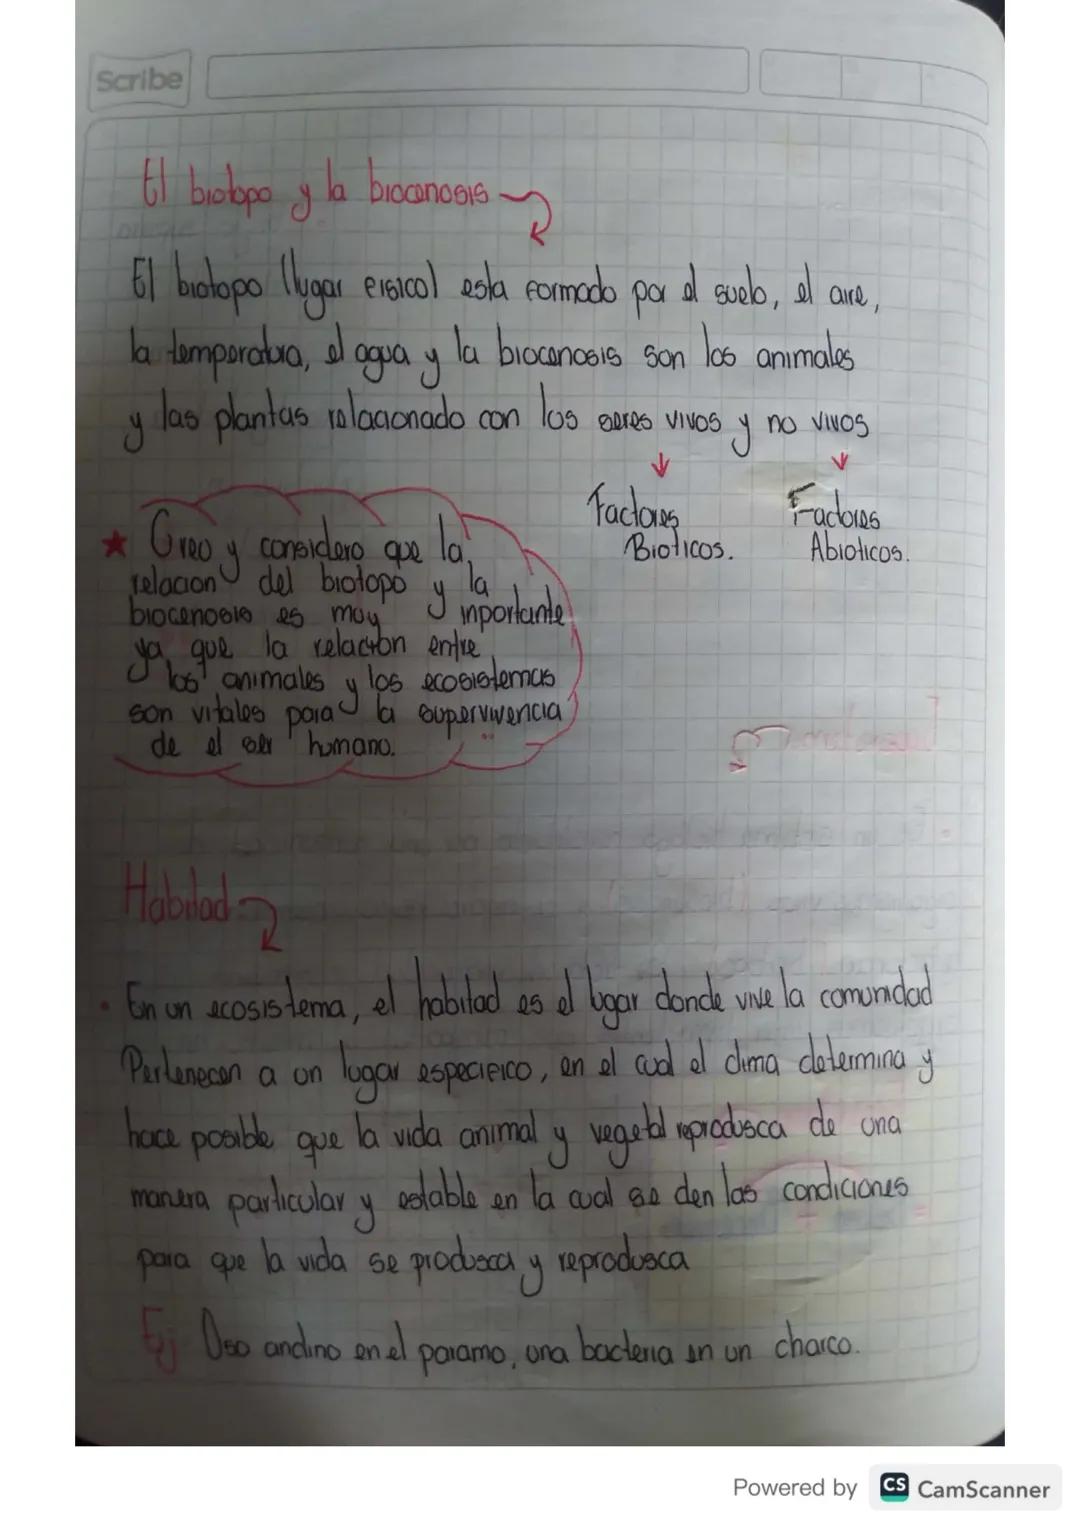 Scribe
El biotopo y la biocenosis
El biotopo (lugar eisico) esta formado por el suelo, el aire,
la temperatura, el agua y la biocenosis son los animales
y las plantas relacionado con los seres vivos y no vivos
Factores
Bioticos.
Factores
Abioticos.
Creo y considero que la
relacion del biotopo y la
biocenosis es muy inportante
ya que la relacion entre
los animales y los ecosistemas
son vitales para la supervivencia
de el ser humano.
Habitad
En un ecosistema, el habitad es el lugar donde vive la comunidad
Pertenecen a un lugar especieico, en el cual el clima determina y
hace posible que la vida animal y vegetal reprodusca de una
manera particular y estable en la cual se den las condiciones
para que la vida se produsca y reprodusca
Ej Oso andino en el paramo, una bacteria en un charco.
Powered by CS CamScanner